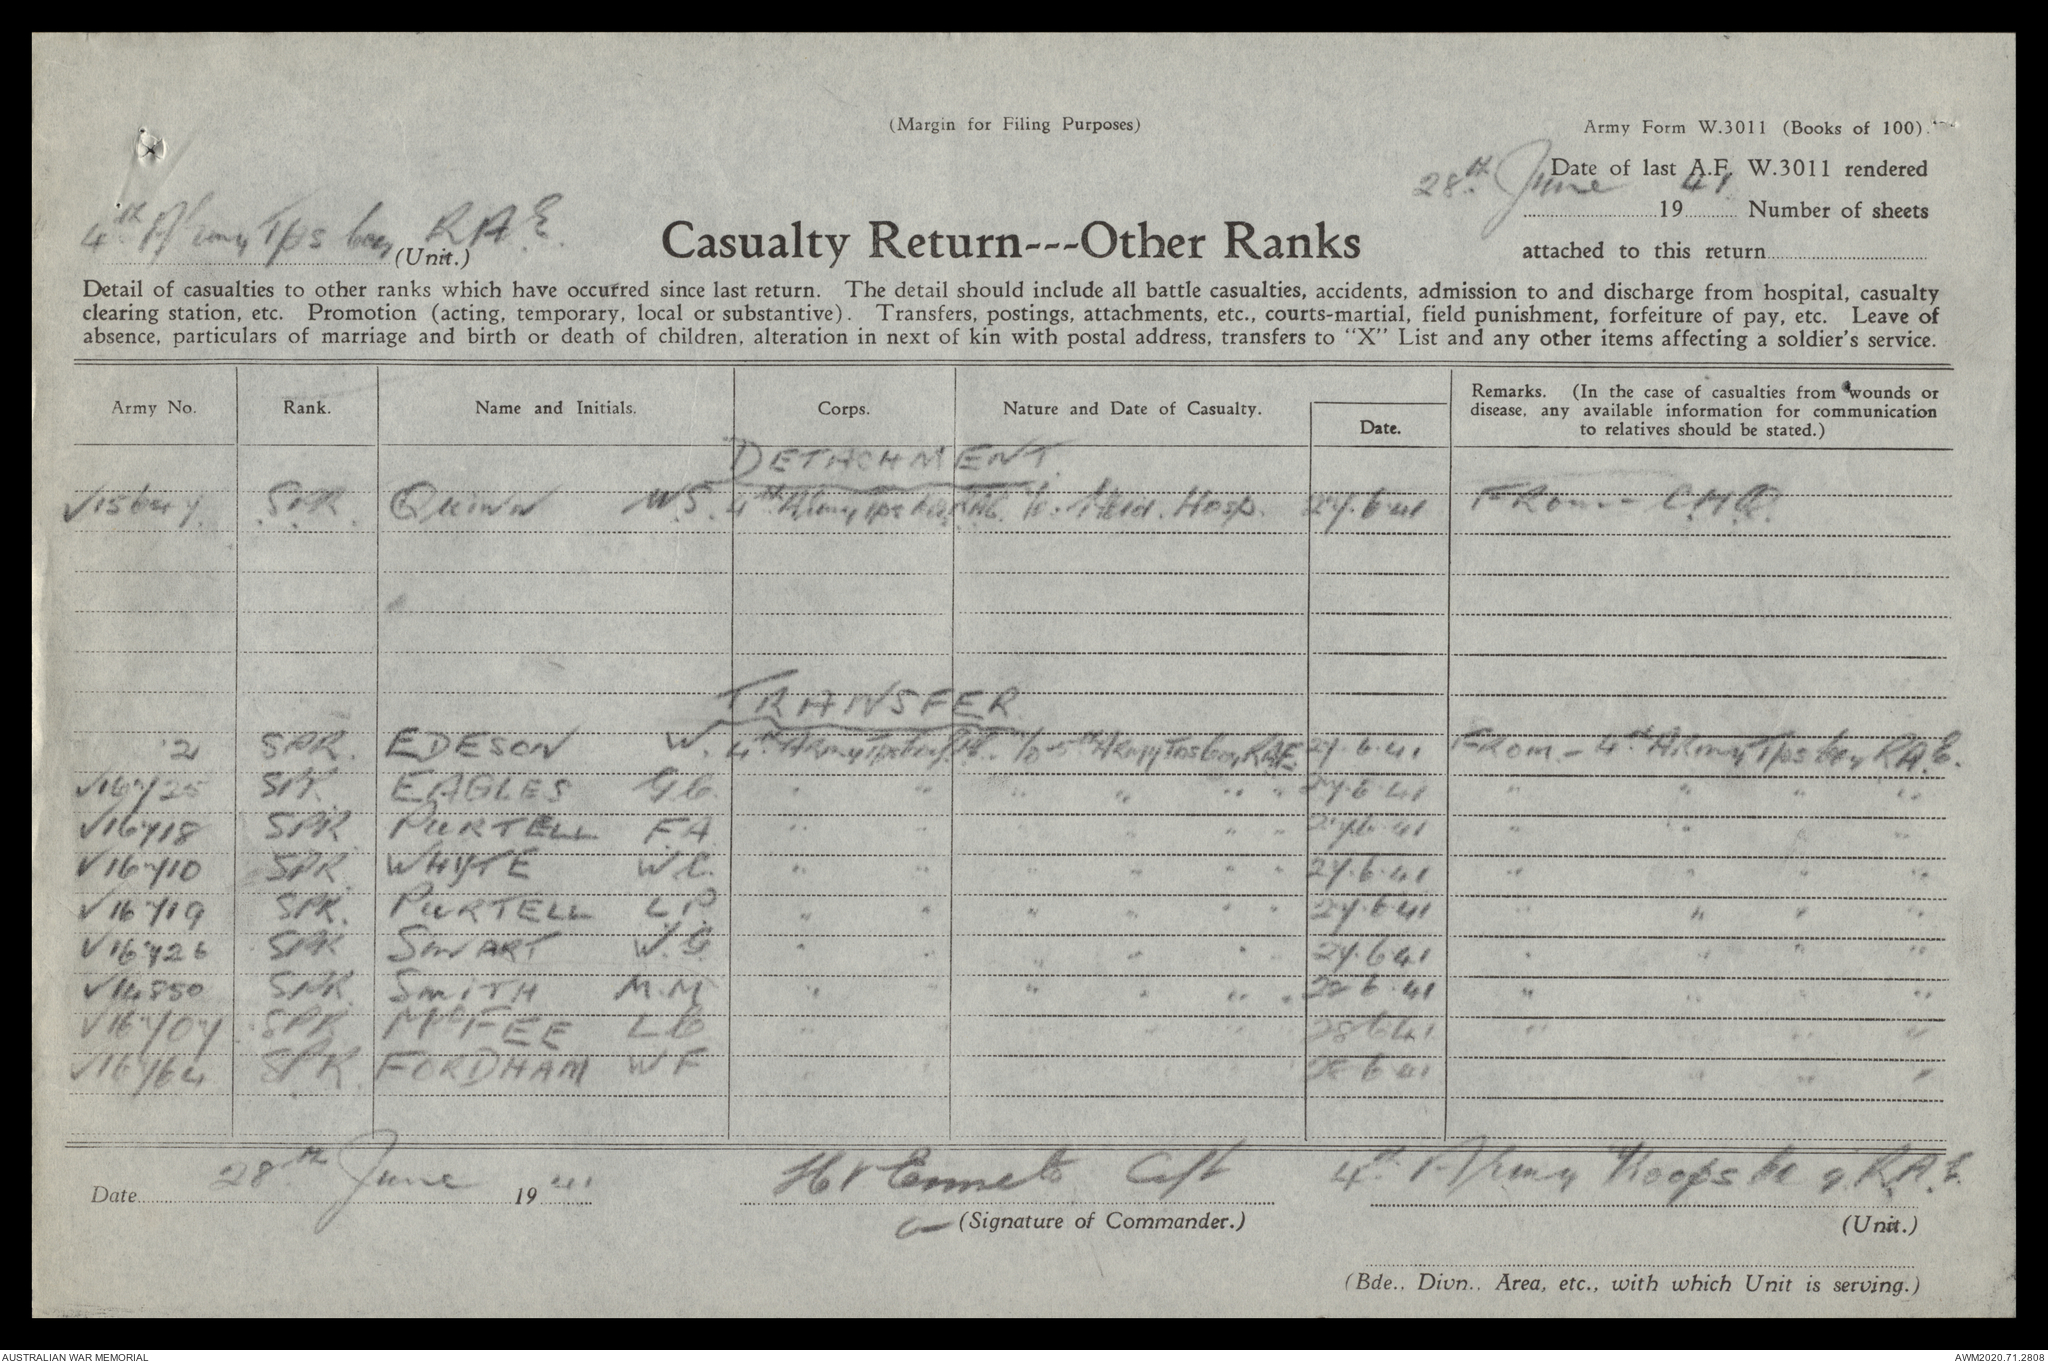 (Margin for Filing Purposes)
Army Form W.3011 (Books of 100).
Date of last A.F. W.3011 rendered
28th June 1941. Number of sheets
attached to this return
4th Army Tps Coy R.A.E.
(Unit.)
Casualty Return---Other Ranks
Detail of casualties to other ranks which have occurred since last return. The detail should include all battle casualties, accidents, admission to and discharge from hospital, casualty
clearing station, etc. Promotion (acting, temporary, local or substantive). Transfers, postings, attachments, etc., courts-martial, field punishment, forfeiture of pay, etc. Leave of
absence, particulars of marriage and birth or death of children, alteration in next of kin with postal address, transfers to "X" List and any other items affecting a soldier's service.
Army No. Rank. Name and Initials. Corps. Nature and Date of Casualty. Date. Remarks. (In the case of casualties from wounds or
disease, any available information for communication
to relatives should be stated.)
DETACHMENT.
SPR. QUINN W.S. 4th Army Tps Coy RAE Hosp. 27.6.41 FROM - C.M.Q.
TRANSFER
2 SPR. EDESON W. 4th Army Tps Coy To 5th Army Tps Coy RAE 27.6.41 FROM - 4th Army Tps Coy R.A.E.
V16725 SPR. EAGLES G.C. " " " " " " 27.6.41 " " " "
V16718 SPR PURTELL F.A " " " " " " 27.6.41 " " " "
V16710 SPR. WHYTE W.C. " " " " " " 27.6.41 " " " "
V16719 SPR. PURTELL L.P. " " " " " " 27.6.41 " " " "
V16726 SPR SWART W.G. " " " " " 27.6.41 " " " "
V14850 SPR. SMITH M.M " " " " " " 28.6.41 " " " "
V16707 SPR McFEE L.C " " " " " 28.6.41 " " " "
V16764 SPR. FORDHAM W F " " " " " 28.6.41 " " "
Date 28th June 1941 Capt 4th Army Troops Coy R.A.E.
(Signature of Commander.) (Unit.)
(Bde., Divn., Area, etc., with which Unit is serving.)
AUSTRALIAN WAR MEMORIAL AWM2020.71.2808